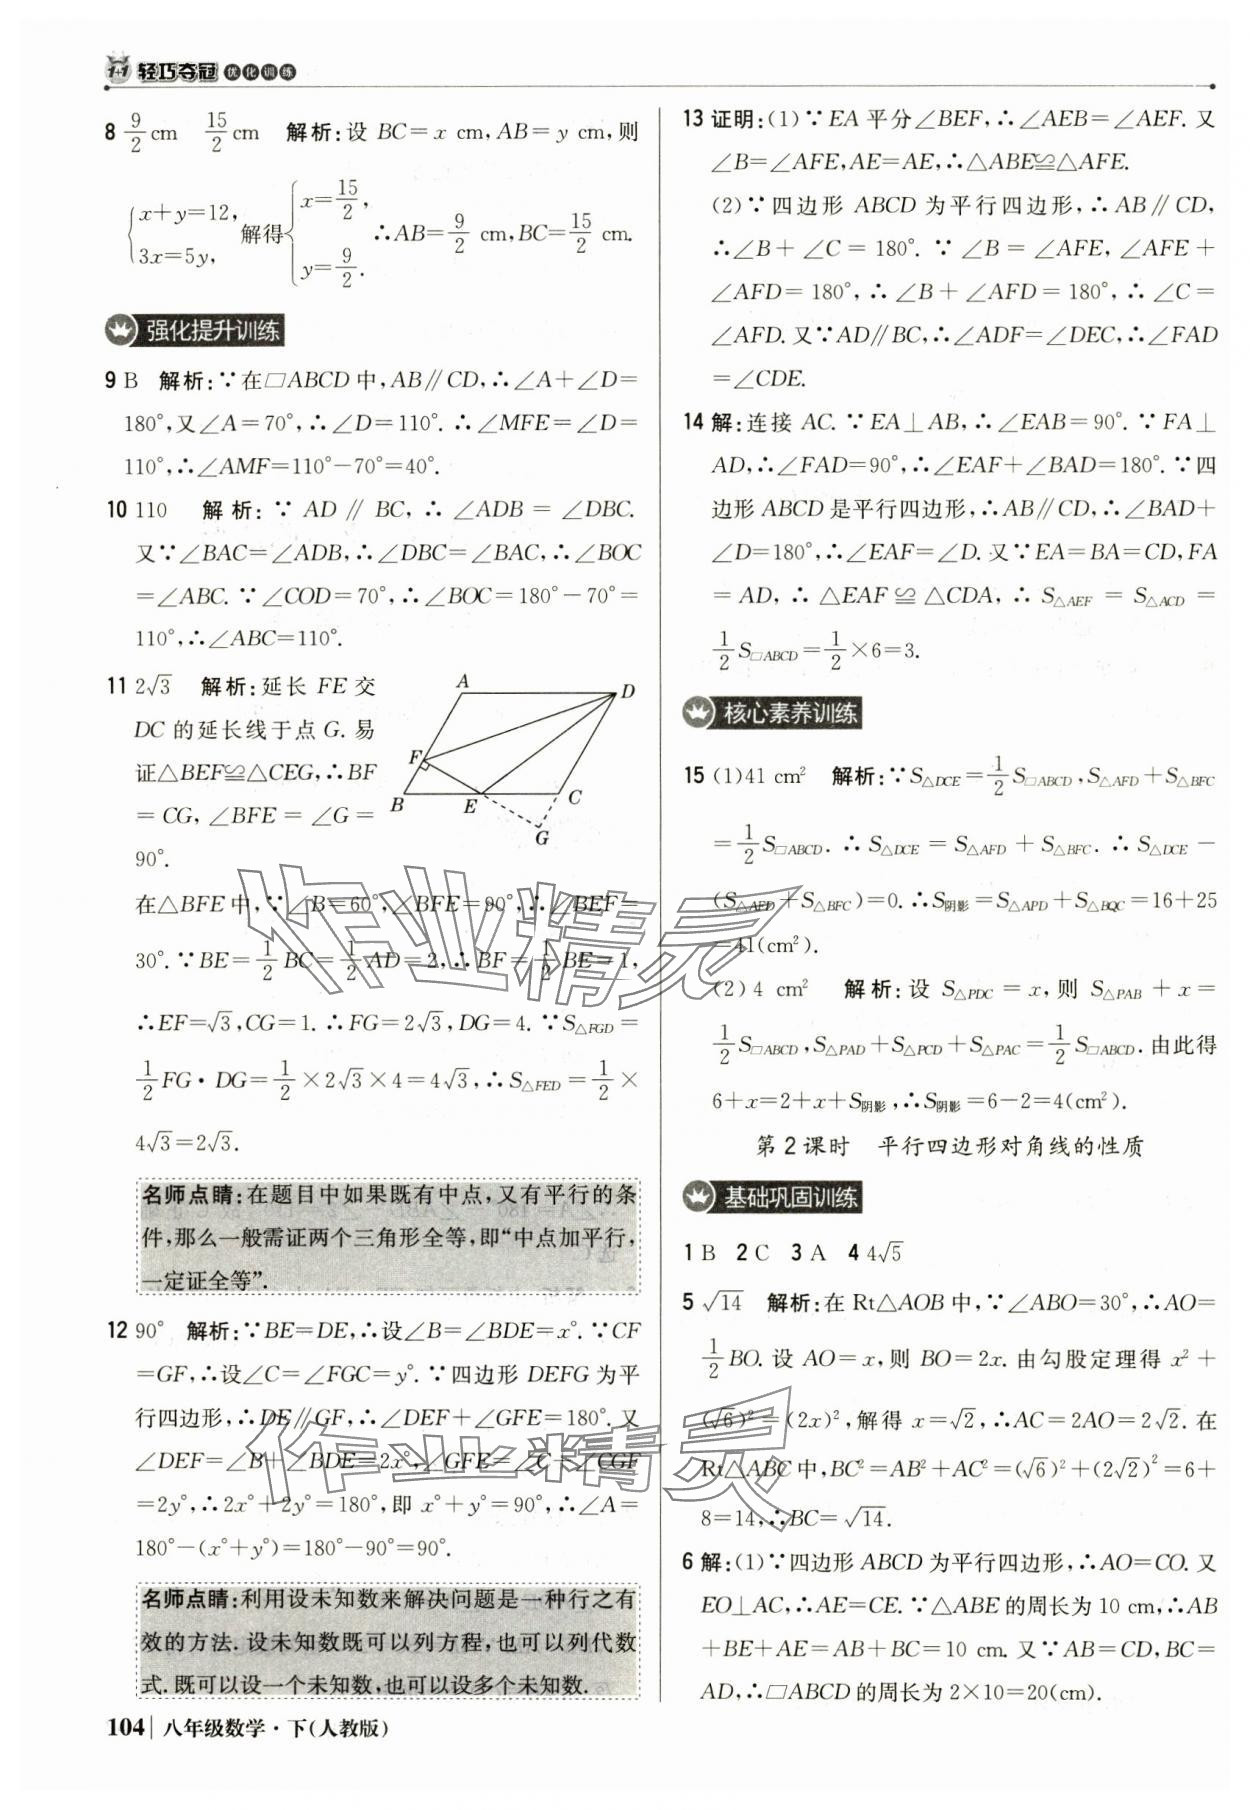 1+1 轻巧夺冠 优化训练
8 9/2 cm 15/2 cm 解析:设 BC=x cm,AB=y cm,则
{x+y=12, 3x=5y, 解得{x=15/2, y=9/2. ∴AB=9/2 cm,BC=15/2 cm.
强化提升训练
9 B 解析:∵在□ABCD中,AB∥CD,∴∠A+∠D=
180°,又∠A=70°,∴∠D=110°.∴∠MFE=∠D=
110°,∴∠AMF=110°-70°=40°.
10 110 解析:∵AD∥BC,∴∠ADB=∠DBC.
又∵∠BAC=∠ADB,∴∠DBC=∠BAC,∴∠BOC
=∠ABC.∵∠COD=70°,∴∠BOC=180°-70°=
110°,∴∠ABC=110°.
11 2√3 解析:延长 FE 交
DC 的延长线于点 G. 易
证△BEF≌△CEG,∴BF
=CG,∠BFE=∠G=
90°.
A
D
F
B
E
C
G
在△BFE中,∵∠B=60°,∠BFE=90°,∴∠BEF=
30°.∵BE=1/2 BC=1/2 AD=2,∴BF=1/2 BE=1,
∴EF=√3,CG=1.∴FG=2√3,DG=4.∵S△FGD=
1/2 FG·DG=1/2×2√3×4=4√3,∴S△FED=1/2×
4√3=2√3.
名师点睛:在题目中如果既有中点,又有平行的条
件,那么一般需证两个三角形全等,即“中点加平行,
一定证全等”.
12 90° 解析:∵BE=DE,∴设∠B=∠BDE=x°.∵CF
=GF,∴设∠C=∠FGC=y°.∵四边形 DEFG 为平
行四边形,∴DE∥GF,∴∠DEF+∠GFE=180°.又
∠DEF=∠B+∠BDE=2x°,∠GFE=∠C+∠CGF
=2y°,∴2x°+2y°=180°,即 x°+y°=90°,∴∠A=
180°-(x°+y°)=180°-90°=90°.
名师点睛:利用设未知数来解决问题是一种行之有
效的方法.设未知数既可以列方程,也可以列代数
式.既可以设一个未知数,也可以设多个未知数.
104 八年级数学·下(人教版)
13 证明:(1)∵EA 平分∠BEF,∴∠AEB=∠AEF.又
∠B=∠AFE,AE=AE,∴△ABE≌△AFE.
(2)∵四边形 ABCD 为平行四边形,∴AB∥CD,
∴∠B+∠C=180°.∵∠B=∠AFE,∠AFE+
∠AFD=180°,∴∠B+∠AFD=180°,∴∠C=
∠AFD.又∵AD∥BC,∴∠ADF=∠DEC,∴∠FAD
=∠CDE.
14 解:连接 AC.∵EA⊥AB,∴∠EAB=90°.∵FA⊥
AD,∴∠FAD=90°,∴∠EAF+∠BAD=180°.∵四
边形 ABCD 是平行四边形,∴AB∥CD,∴∠BAD+
∠D=180°,∴∠EAF=∠D.又∵EA=BA=CD,FA
=AD,∴△EAF≌△CDA,∴S△AEF=S△ACD=
1/2 S□ABCD=1/2×6=3.
核心素养训练
15 (1)41 cm² 解析:∵S△DCE=1/2 S□ABCD,S△AFD+S△BFC
=1/2 S□ABCD.∴S△DCE=S△AFD+S△BFC.∴S△DCE-
(S△AFD+S△BFC)=0.∴S阴影=S△APD+S△BQC=16+25
=41(cm²).
(2)4 cm² 解析:设 S△PDC=x,则 S△PAB+x=
1/2 S□ABCD,S△PAD+S△PCD+S△PAC=1/2 S□ABCD.由此得
6+x=2+x+S阴影,∴S阴影=6-2=4(cm²).
第2课时 平行四边形对角线的性质
基础巩固训练
1 B 2 C 3 A 4 4√5
5 √14 解析:在 Rt△AOB 中,∵∠ABO=30°,∴AO=
1/2 BO.设 AO=x,则 BO=2x.由勾股定理得 x²+
(√6)²=(2x)²,解得 x=√2,∴AC=2AO=2√2.在
Rt△ABC 中,BC²=AB²+AC²=(√6)²+(2√2)²=6+
8=14,∴BC=√14.
6 解:(1)∵四边形 ABCD 为平行四边形,∴AO=CO.又
EO⊥AC,∴AE=CE.∵△ABE 的周长为 10 cm,∴AB
+BE+AE=AB+BC=10 cm.又∵AB=CD,BC=
AD,∴□ABCD 的周长为 2×10=20(cm).
作业精灵
作业精灵